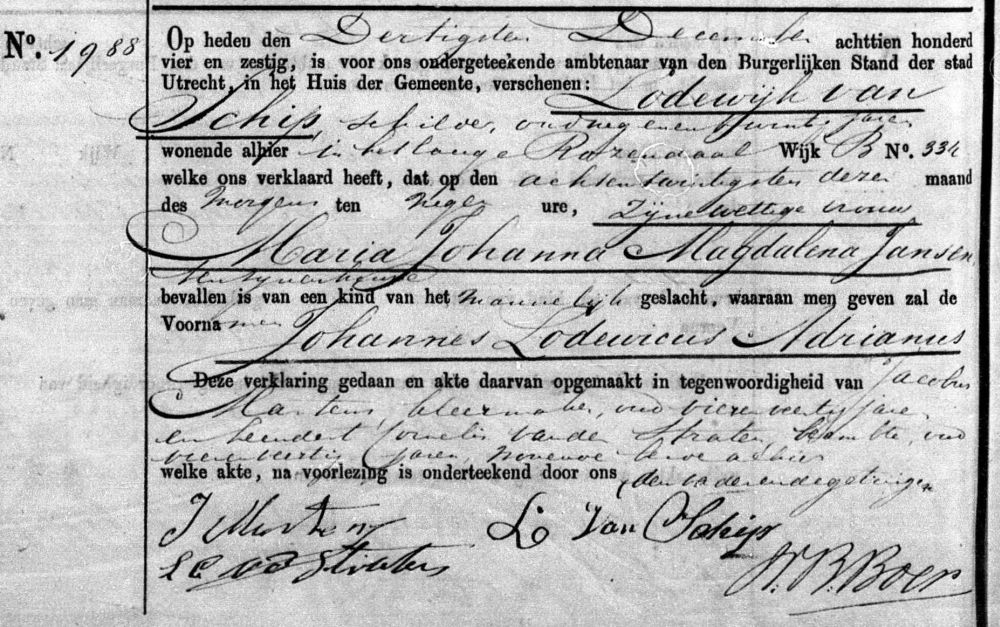 N⁰. 1988
Op heden den Dertigsten December achttien honderd
vier en zestig, is voor ons ondergeteekende ambtenaar van den Burgerlijken Stand der stad
Utrecht, in het Huis der Gemeente, verschenen: Lodewijk van
Schip, schilder, oud negenentwintig jaren
wonende alhier in het lange Rozendaal Wijk B N⁰. 334
welke ons verklaard heeft, dat op den achtentwintigsten dezer maand
des morgens ten negen ure, zijne wettige vrouw
Maria Johanna Magdalena Jansen
ten zijnen huize
bevallen is van een kind van het mannelijk geslacht, waaraan men geven zal de
Voornamen Johannes Lodewicus Adrianus
Deze verklaring gedaan en akte daarvan opgemaakt in tegenwoordigheid van Jacobus
Martens, kleermaker, oud vierenveertig jaren
en Leendert Cornelis van der Straten, beambte, oud
vierenveertig jaren, wonende alhier
welke akte, na voorlezing is onderteekend door ons, den vader en de getuigen
J Martens L Van Schip
L C vd Straten